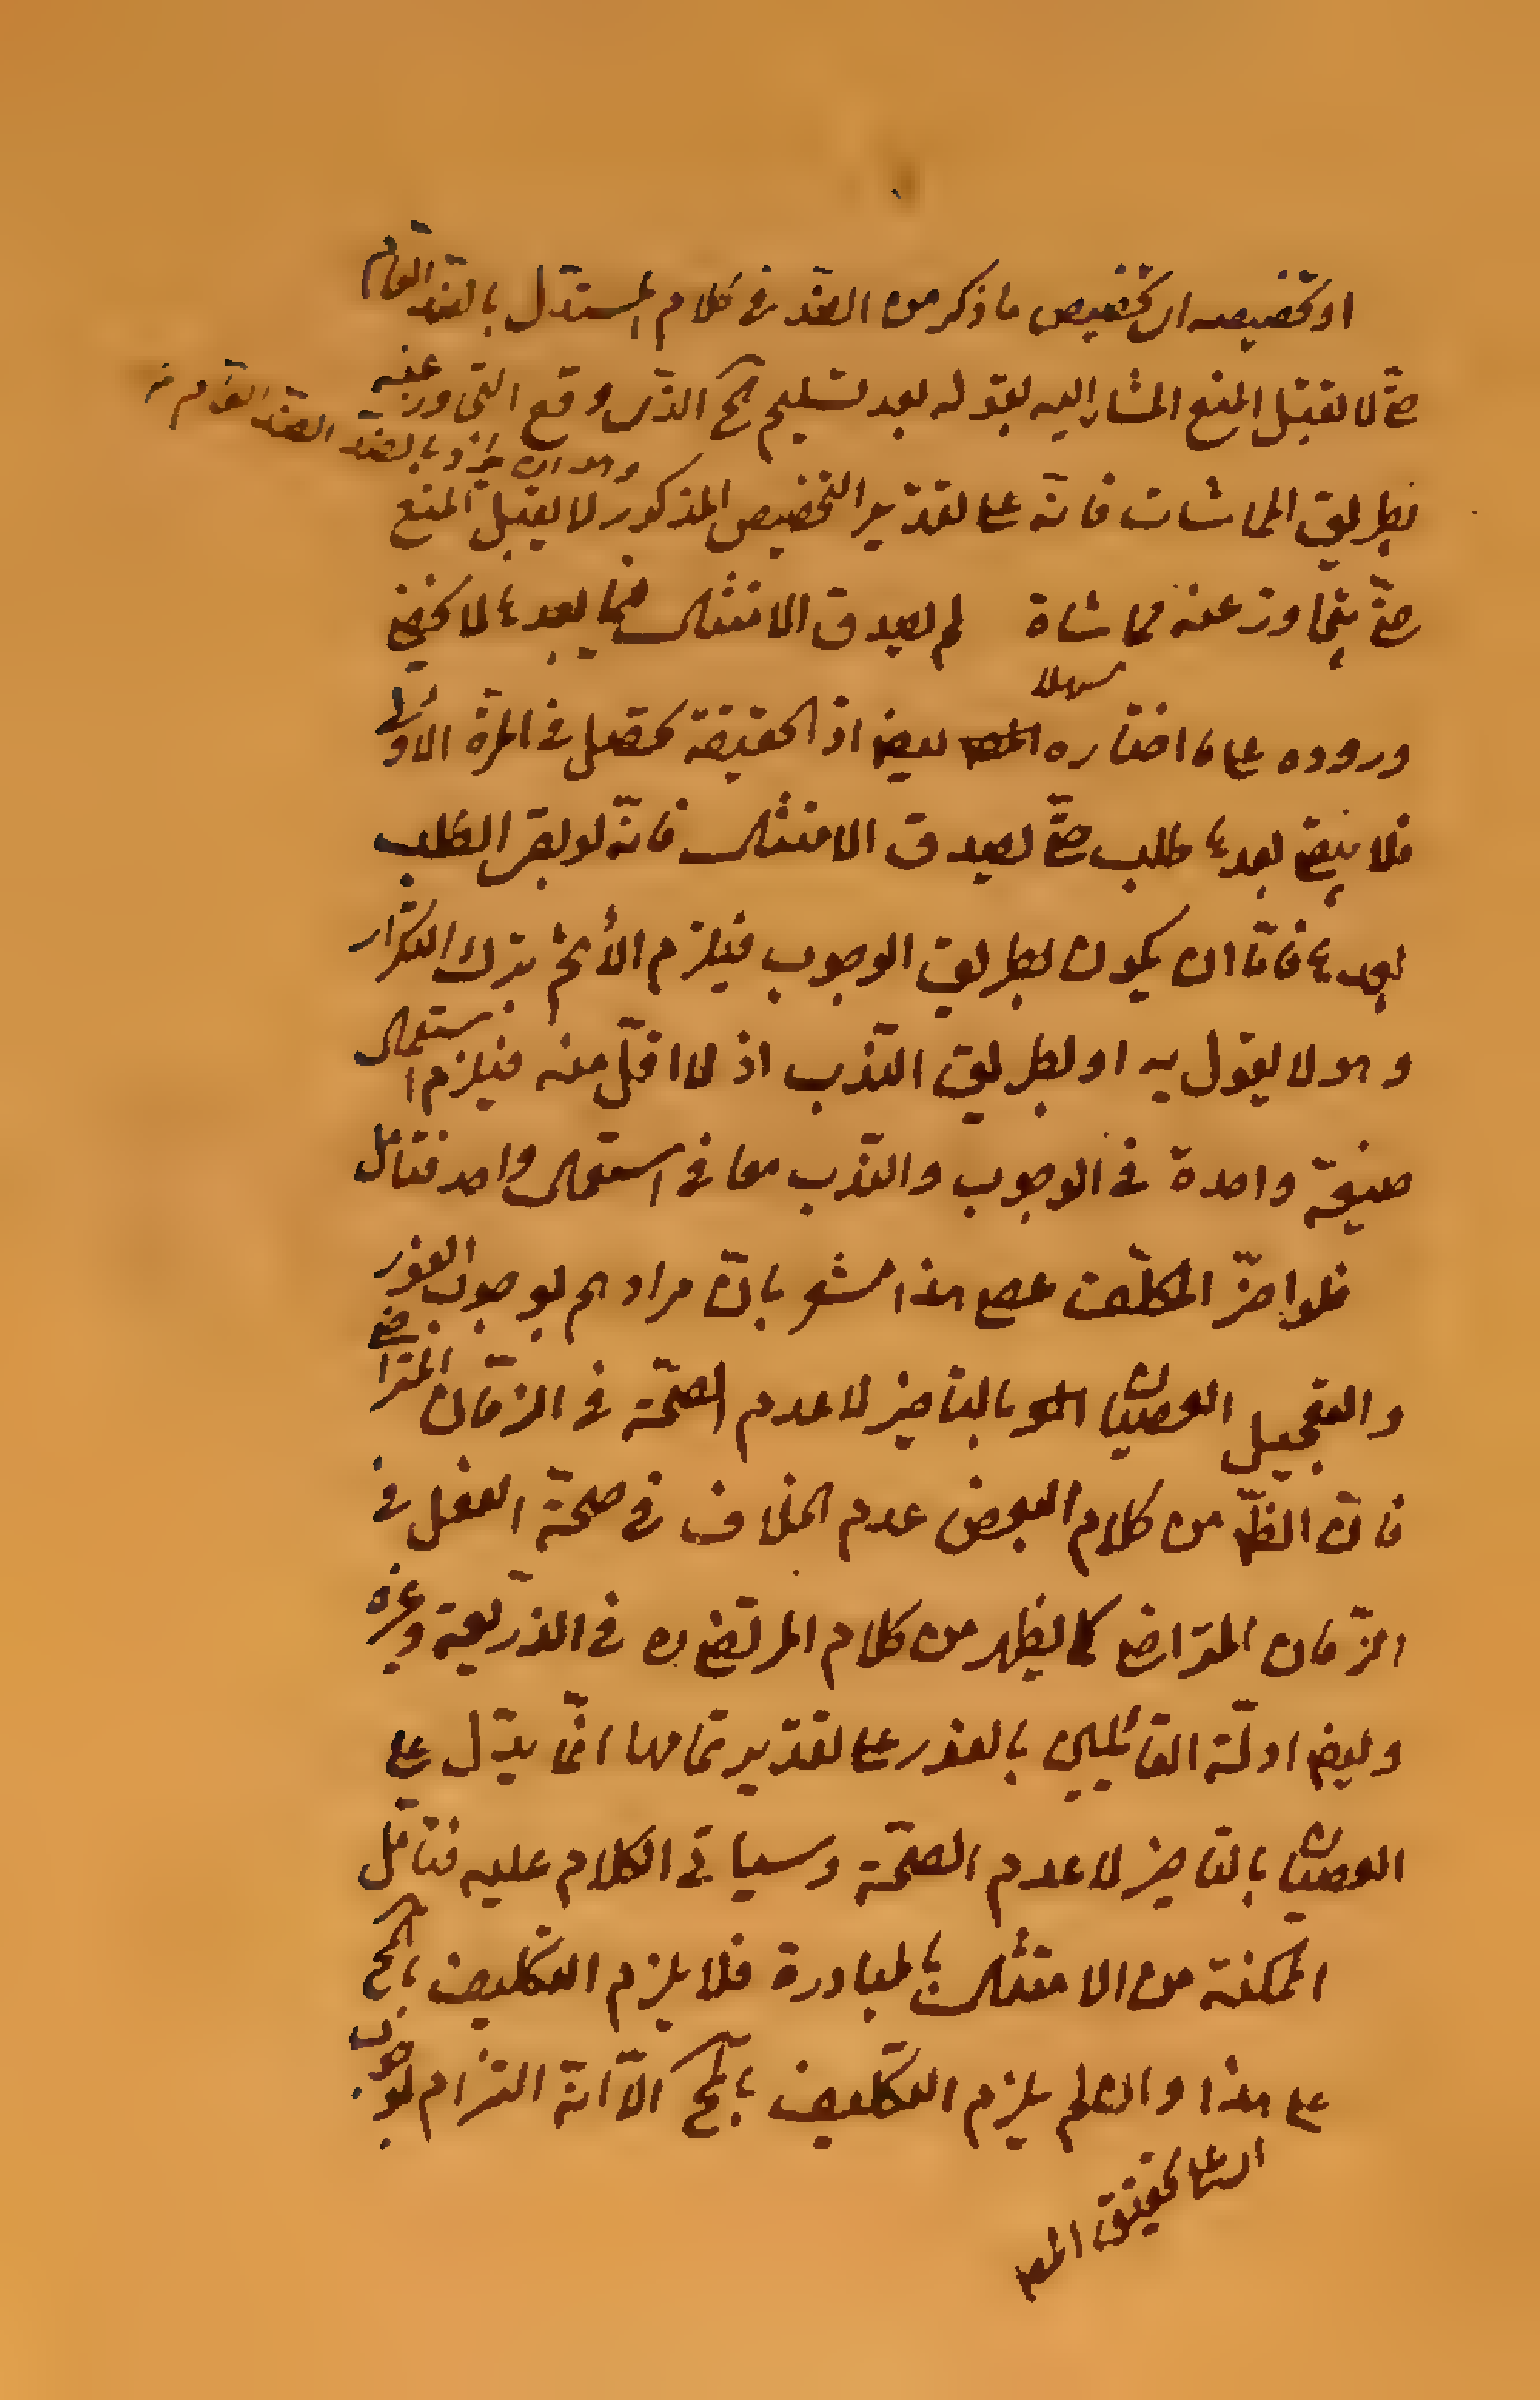 او تخصيصه اى تخصيص ما ذكر من الضد فى كلام المستدل بالضد العام
حتى لا يقبل المنع المشار اليه بقوله بعد تسليم آلخ الذى وقع التجاوز عنه
وهو ان يراد بالضد الضد العام منه
بطريق المماشات فانه على تقدير التخصيص المذكور لا يقبل المنع
حتى يتجاوز عنه مماشاة لم يصدق الامتثال فيما بعدها لا يخفى
سهلا
وروده على ما اختاره المص ايضا اذ الحقيقة تحصل فى المرة الاولى
فلا يبقى بعدها طلب حتى يصدق الامتثال فانه لو بقى الطلب
بعدها فامّا ان يكون بطريق الوجوب فيلزم الأثم بترك التكرار
وهو لا يقول به او بطريق الندب اذ لا اقل منه فيلزم استعمال
صيغة واحدة فى الوجوب والندب معا فى استعمال واحد فتأمل
فلو اخّر المكلف عصى هذا مشعر بان مرادهم بوجوب الفور
والتعجيل العصيان بالتاخير لا عدم الصحّة فى الزمان المتراخى
فان الظّ من كلام البعض عدم الخلاف فى صحّة الفعل فى
الزمان المتراخى كما يظهر من كلام المرتضى ره فى الذريعة وغيره
وايضا ادلّة القائلين بالفور على تقدير تمامها انّما يدلّ على
العصيان بالتاخير لا عدم الصحّة وسياتى الكلام عليه فتأمل
لتمكنه من الامتثال بالمبادرة فلا يلزم التكليف بالمح
على هذا والعلم يلزم التكليف بالمح الّا انّه التزام لوجوب
تحقيق المص